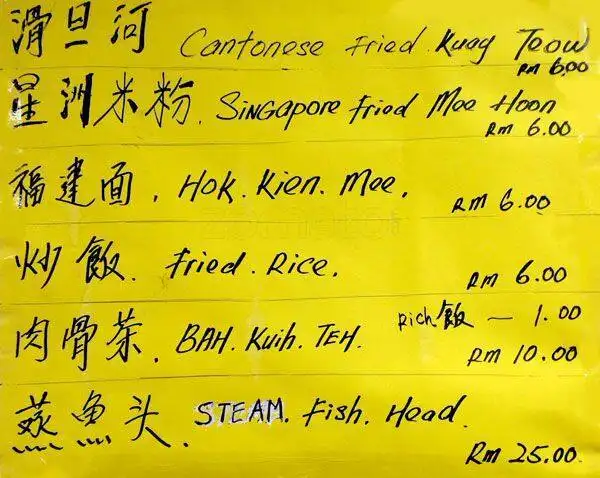 滑旦河 Cantonese Fried Kuay Teow
RM 6.00
星洲米粉. SINGAPORE Fried Mee Hoon
RM 6.00
福建面. Hok. Kien. Mee.
RM 6.00
炒飯. Fried. Rice.
RM 6.00
Rich 飯 — 1.00
肉骨茶. BAH. Kuih. TEH.
RM 10.00
蒸魚头. STEAM. Fish. Head.
RM 25.00